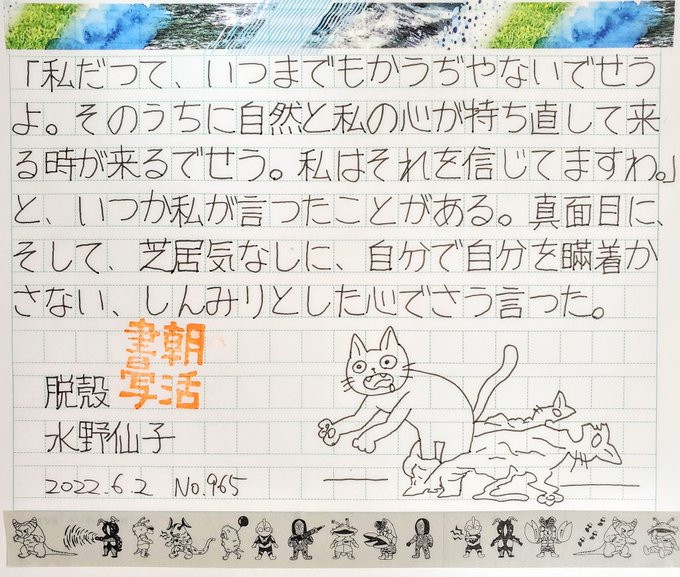 「私だつて、いつまでもかうぢやないでせう
よ。そのうちに自然と私の心が持ち直して来
る時が来るでせう。私はそれを信じてますわ。」
と、いつか私が言つたことがある。真面目に、
そして、芝居気なしに、自分で自分を瞞着か
さない、しんみりとした心でさう言つた。
朝活書写
脱殻
水野仙子
2022.6.2 No.965